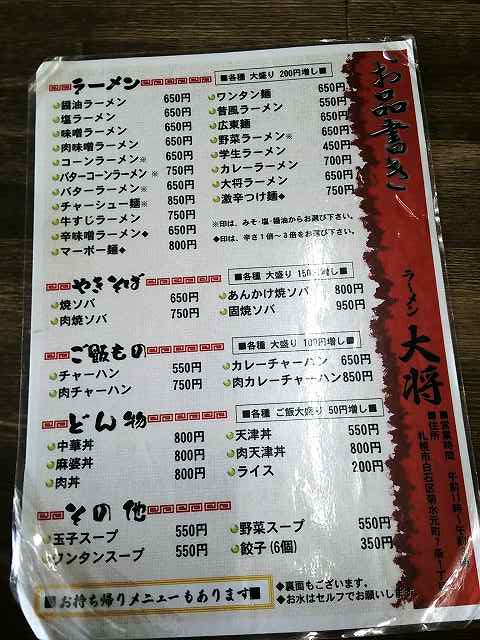 お品書き
ラーメン
■各種 大盛り 200円増し■
醤油ラーメン 650円
塩ラーメン 650円
味噌ラーメン 650円
肉味噌ラーメン 650円
コーンラーメン※ 650円
バターコーンラーメン※ 750円
バターラーメン※ 650円
チャーシュー麺※ 850円
牛すじラーメン 750円
辛味噌ラーメン◆ 650円
マーボー麺◆ 800円
ワンタン麺 650円
昔風ラーメン 550円
広東麺 650円
野菜ラーメン※ 650円
学生ラーメン 450円
カレーラーメン 700円
大将ラーメン 650円
激辛つけ麺◆ 750円
※印は、みそ・塩・醤油からお選び下さい。
◆印は、辛さ1倍~3倍をお選び下さい。
やきそば
■各種 大盛り 150円増し■
焼ソバ 650円
肉焼ソバ 750円
あんかけ焼ソバ 800円
固焼ソバ 950円
ご飯もの
■各種 大盛り 100円増し■
チャーハン 550円
肉チャーハン 750円
カレーチャーハン 650円
肉カレーチャーハン 850円
どん物
■各種 ご飯大盛り 50円増し■
中華丼 800円
麻婆丼 800円
肉丼 800円
天津丼 550円
肉天津丼 800円
ライス 200円
その他
玉子スープ 550円
ワンタンスープ 550円
野菜スープ 550円
餃子(6個) 350円
■お持ち帰りメニューもあります■
◆裏面もございます。
◆お水はセルフでお願いします
ラーメン 大将
■営業時間 午前11時~午前
■住所
札幌市白石区菊水元町7条1丁